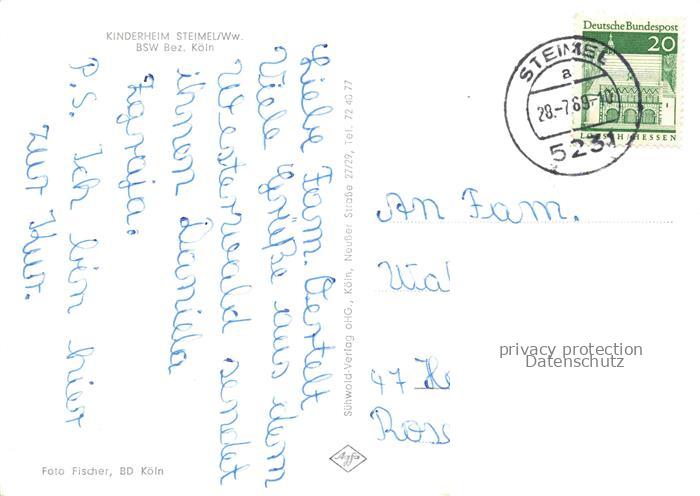 KINDERHEIM STEIMEL/Ww.
BSW Bez. Köln
Liebe Fam. Oertelt
Viele Grüße aus dem
Westerwald sendet
ihnen Daniela
P.S. Ich bin hier
zur Kur.
Foto Fischer, BD Köln
Sühwold-Verlag oHG., Köln, Neußer Straße 27/29, Tel. 72 40 77
Agfa
Deutsche Bundespost
20
LORSCH/HESSEN
STEIMEL
a
28.-7.69.-10
5231
An Fam.
47
Ross
privacy protection
Datenschutz